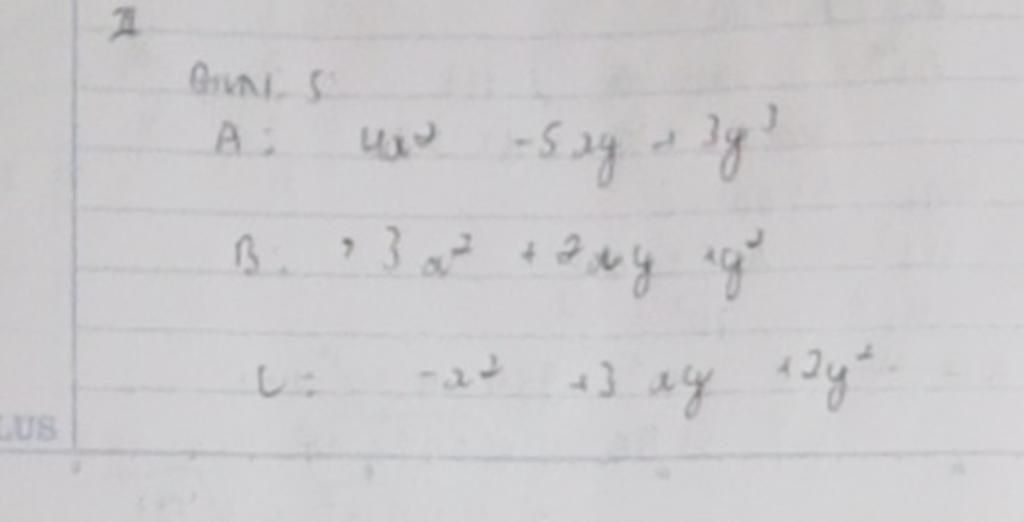 II
A: 4x² -5xy + 3y³
B. 3x² + 2xy + y²
C = -x² +3 xy +2y²
LUS